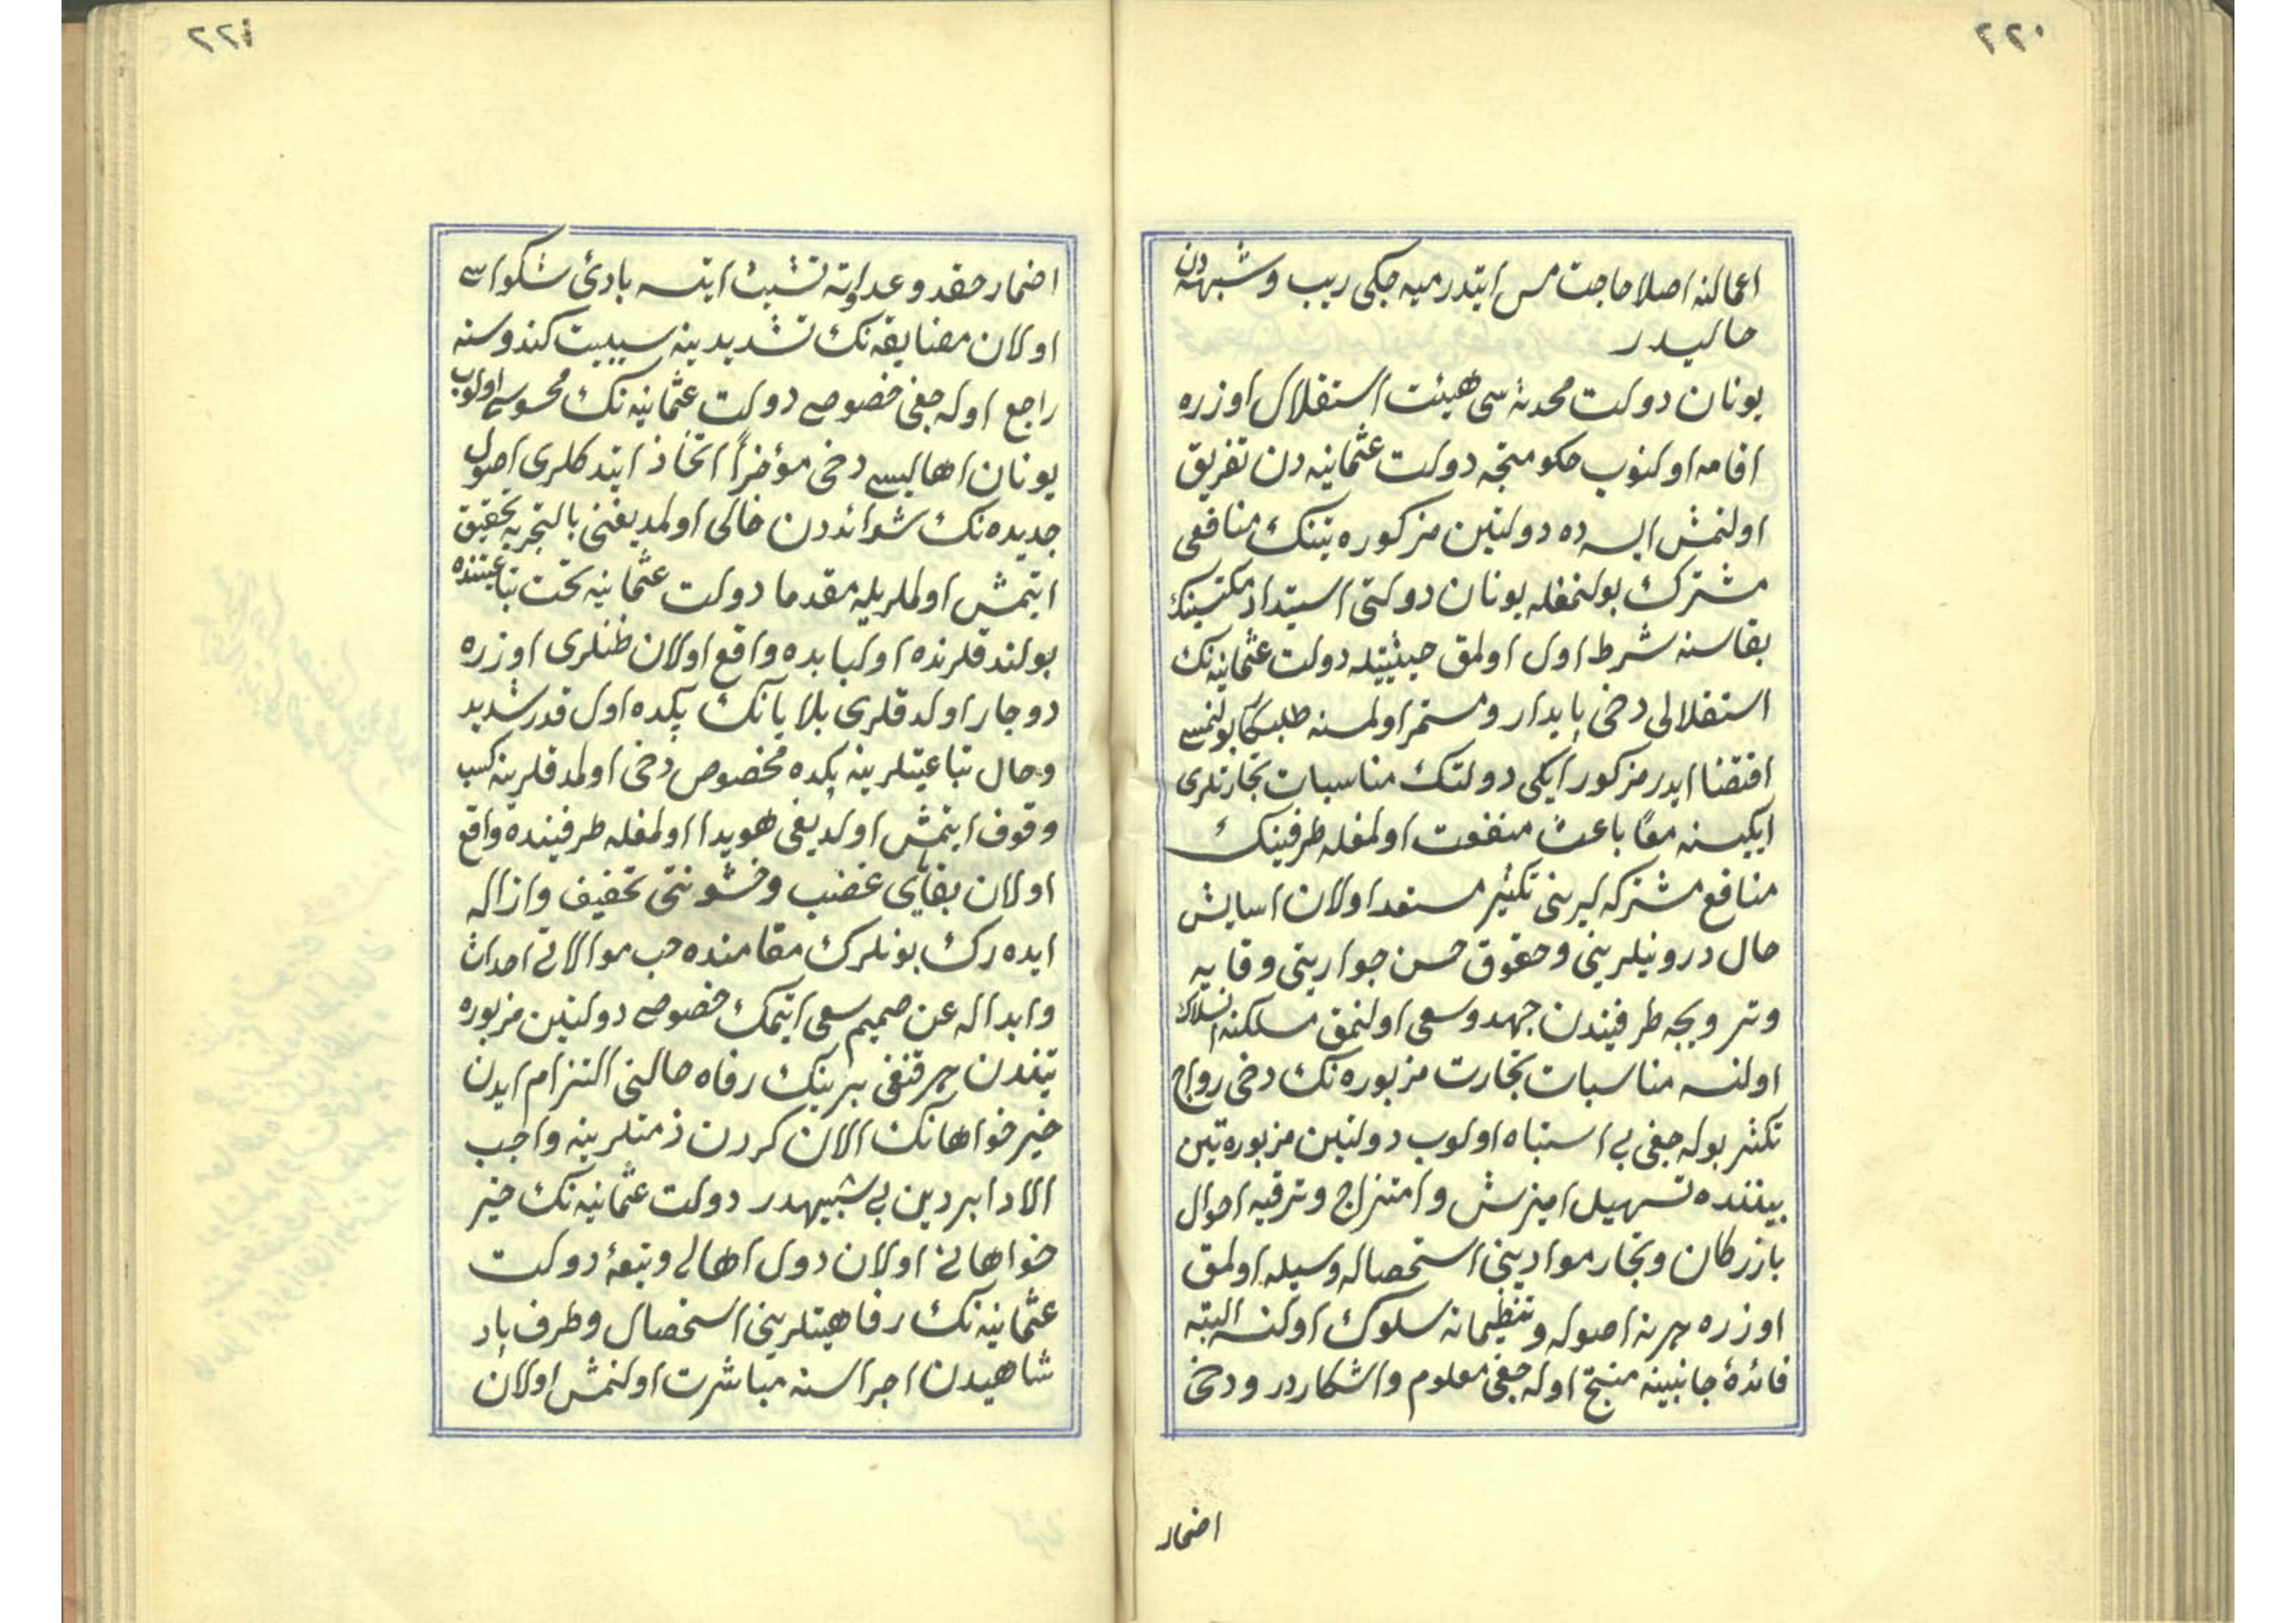 ٢٢٠
اعمالنه اصلا حاجت مس ایتدرمیه جکی ریب وشبهه دن
حالیدر
یونان دولت محدثه سی هیئت استقلال اوزره
اقامه اولنوب حکومتجه دولت عثمانیه دن تفریق
اولنمش ایسه ده دولتین مذکوره تینک منافعی
مشترک بولنمغله یونان دولتی استیداد مکتسبنک
بقاسنه شرط اول اولمق حیثیتله دولت عثمانیه نک
استقلالی دخی پایدار ومستمر اولمسنه طلبکار بولنمسی
اقتضا ایدر مذکور ایکی دولتک مناسبات تجارتلری
ایکیسنه معًا باعث منفعت اولمغله طرفینک
منافع مشترکه لرینی تکثیر مستعد اولان اسایش
حال درونیلرینی وحقوق حسن جوارینی وقایه
وترویجه طرفیندن جهد وسعی اولنمق مسلکنه انسلاک
اولنسه مناسبات تجارت مزبوره نک دخی رواج
تکثر بوله جغی بی اشتباه اولوب دولتین مزبوره تین
بیننده تسهیل امیزش وامتزاج وترفیه احوال
بازرکان وتجار موادینی استحصاله وسیله اولمق
اوزره هر نه اصوله وتنظیمانه سلوک اولنسه البته
فائدهٔ جانبینه منتج اوله جغی معلوم واشکاردر ودخی
اضمار
٢٢١
اضمار حقد وعداوته تشبث ایتسه بادئ شکواسی
اولان مضایقه نک تشدیدینه سببیت کندوسنه
راجع اوله جغی خصوصی دولت عثمانیه نک محسوسی اولوب
یونان اهالیسی دخی مؤخراً اتخاذ ایتدکلری اصول
جدیده نک شوائبدن خالی اولمدیغنی بالتجربه تحقیق
ایتمش اولملریله مقدما دولت عثمانیه تحت تباعیتنده
بولندقلرنده اولبابده واقع اولان ظنلری اوزره
دوچار اولدقلری بلایانک پکده اول قدر شدید
وحال تباعیتلرینه پکده مخصوص دخی اولمدقلرینه کسب
وقوف ایتمش اولدیغی هویدا اولمغله طرفینده واقع
اولان بقایای غضب وخشونتی تخفیف وازاله
ایده رک بونلرک مقامنده حب موالاتی احداث
وابداله عن صمیم سعی ایتمک خصوصی دولتین مزبوره
تیندن هر قنغی برینک رفاه حالنی التزام ایدن
خیرخواهانک الان کردن ذمتلرینه واجب
الادا بر دین بی شبهه در دولت عثمانیه نک خیر
خواهانی اولان دول اهالی وتبعهٔ دولت
عثمانیه نک رفاهیتلرینی استحصال وطرف پاد
شاهیدن اجراسنه مباشرت اولنمش اولان